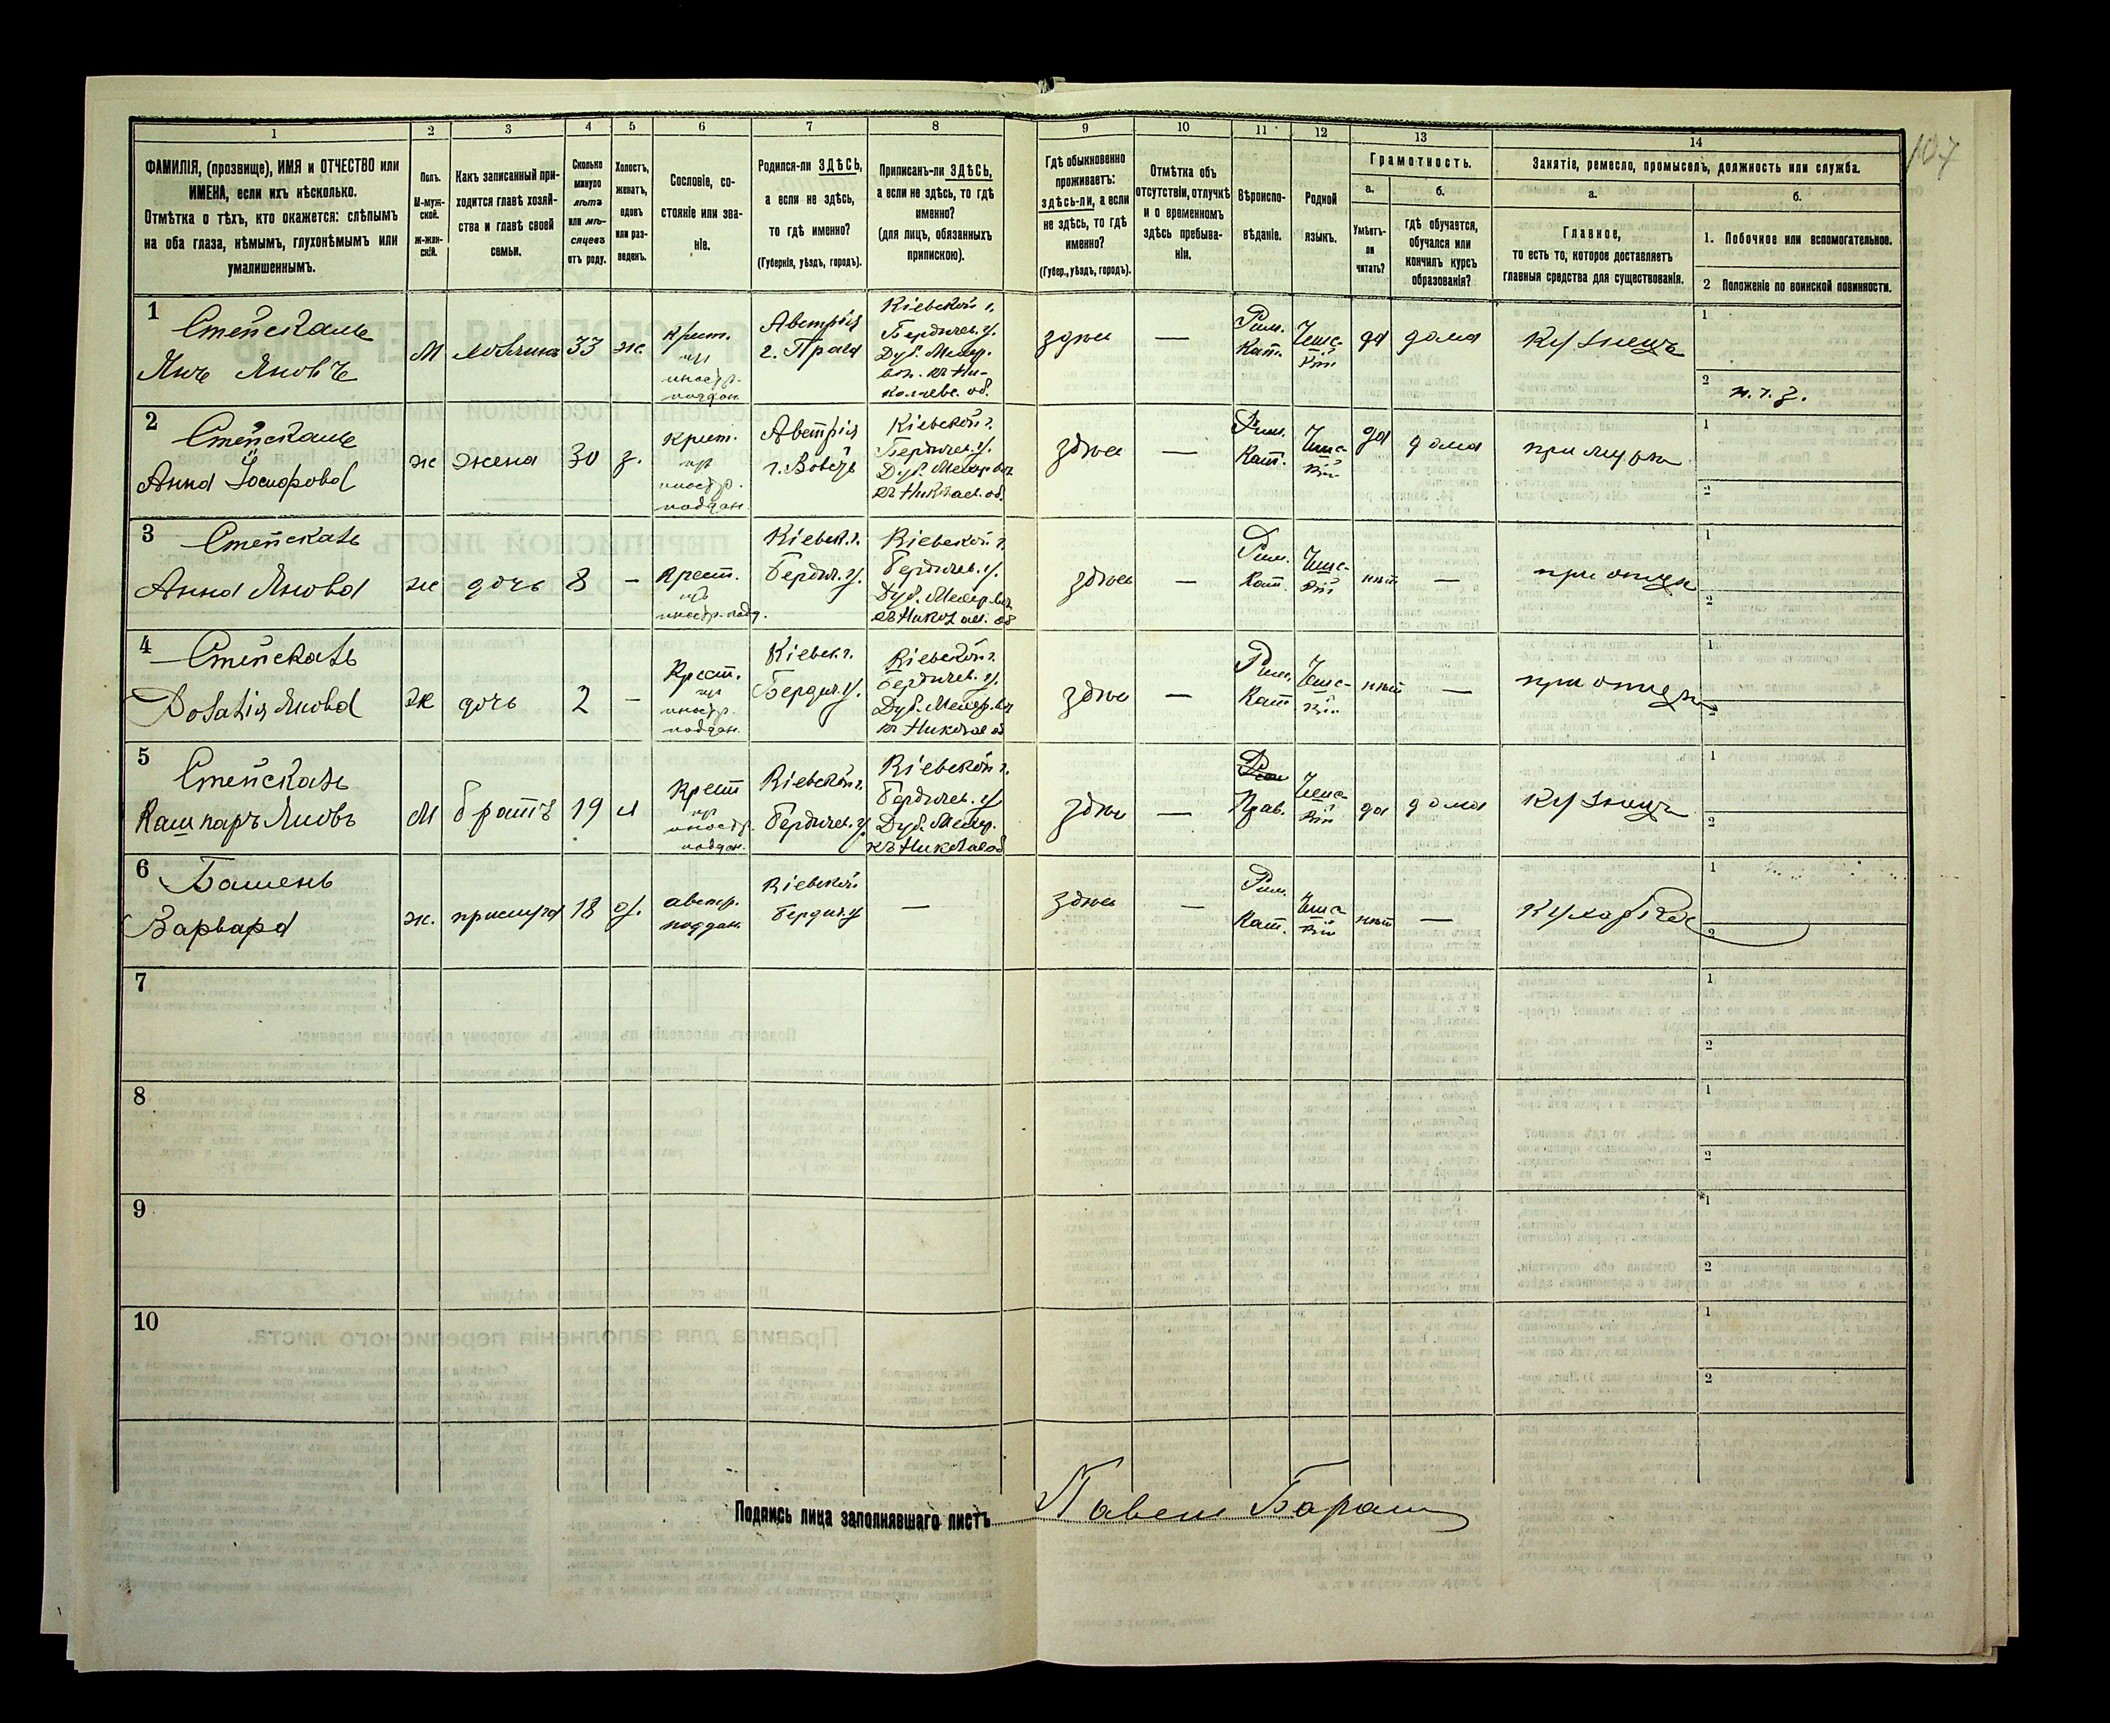 107
1 2 3 4 5 6 7 8 9 10 11 12 13 14
ФАМИЛІЯ, (прозвище), ИМЯ и ОТЧЕСТВО или
ИМЕНА, если ихъ нѣсколько.
Отмѣтка о тѣхъ, кто окажется: слѣпымъ
на оба глаза, нѣмымъ, глухонѣмымъ или
умалишеннымъ.
Полъ.
М-муж-
ской.
ж-жен-
скій.
Какъ записанный при-
ходится главѣ хозяй-
ства и главѣ своей
семьи.
Сколько
минуло
лѣтъ
или мѣ-
сяцевъ
отъ роду.
Холостъ,
женатъ,
вдовъ
или раз-
веденъ.
Сословіе, со-
стояніе или зва-
ніе.
Родился-ли ЗДѢСЬ,
а если не здѣсь,
то гдѣ именно?
(Губернія, уѣздъ, городъ).
Приписанъ-ли ЗДѢСЬ,
а если не здѣсь, то гдѣ
именно?
(для лицъ, обязанныхъ
припискою).
Гдѣ обыкновенно
проживаетъ:
здѣсь-ли, а если
не здѣсь, то гдѣ
именно?
(Губер., уѣздъ, городъ).
Отмѣтка объ
отсутствіи, отлучкѣ
и о временномъ
здѣсь пребыва-
ніи.
Вѣроиспо-
вѣданіе.
Родной
языкъ.
Грамотность.
а.
Умѣетъ-
ли
читать?
б.
Гдѣ обучается,
обучался или
кончилъ курсъ
образованія?
Занятіе, ремесло, промыселъ, должность или служба.
а.
Главное,
то есть то, которое доставляетъ
главныя средства для существованія.
б.
1. Побочное или вспомогательное.
2 Положеніе по воинской повинности.
1
Стейскаль
Янъ Яновъ
М
33
ж.
Крест.
из
иностр.
поддан.
Австрія
г. Прага
Кіевской г.
Бердичев. у.
Дуб.
здѣсь
—
Рим.
Кат.
Чешс-
кій
да
дома
Кузнецъ
1
2
н. т. з.
2
Стейскаль
Анна Іосифова
ж
жена
30
з.
Крест.
из
иностр.
поддан.
Австрія
Кіевской г.
Бердичев. у.
Дуб.
здѣсь
—
Рим.
Кат.
Чешс-
кій
да
дома
при мужѣ
1
2
3
Стейскаль
Анна Янова
ж
дочь
8
—
Крест.
из
иностр. подд.
Кіевск. г.
Бердич. у.
Кіевской г.
Бердичев. у.
Дуб.
здѣсь
—
Рим.
Кат.
Чешс-
кій
нѣт
—
при отцѣ
1
2
4
Стейскаль
Розалія Янова
ж
дочь
2
—
Крест.
из
иностр.
поддан.
Кіевск. г.
Бердич. у.
Кіевской г.
Бердичев. у.
Дуб.
здѣсь
—
Рим.
Кат
Чешс-
кій
нѣт
—
при отцѣ
1
2
5
Стейскаль
Кашпаръ Яновъ
М
братъ
19
Крест
из
иностр.
поддан.
Кіевской г.
Бердичев. у.
Кіевской г.
Бердичев. у.
Дуб.
здѣсь
—
Прав.
Чешс-
кій
да
дома
Кузнецъ
1
2
6
Варвара
ж.
прислуга
18
д.
австр.
поддан.
Кіевской
Бердич. у
—
здѣсь
—
Рим.
Кат.
Чешс-
кій
нѣт
—
Кухарка
1
2
7
1
2
8
1
2
9
1
2
10
1
2
Подпись лица заполнявшаго листъ
Павелъ